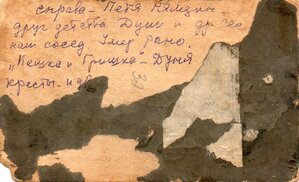 справа - Петя
друг детства Дуни и др.
наш сосед умер рано.
"Пешка и Гришка - Дуня
кресты. и
32